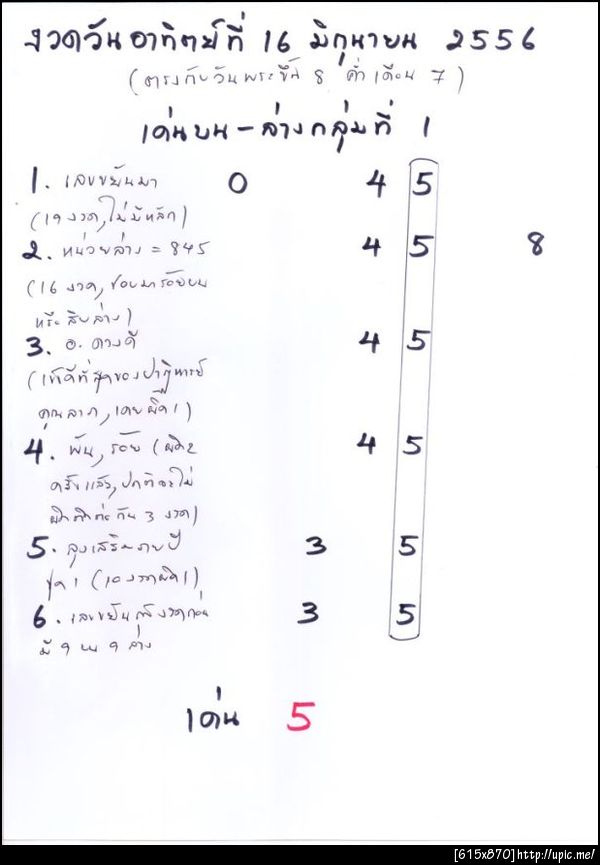 งวดวันอาทิตย์ที่ 16 มิถุนายน 2556
(ตรงกับวันพระขึ้น 8 ค่ำ เดือน 7)
เด่นบน-ล่างกลุ่มที่ 1
1. เลขขยันมา 0 4 5
(19 งวด, ไม่มีหลัก)
2. หน่วยล่าง = 845 4 5 8
(16 งวด, ชอบมาร้อยบน
หรือสิบล่าง)
3. อ. ดวงดี 4 5
(เซ็ตดีที่สุดของปาฏิหารย์
คุณลาภ, เคยผิด 1)
4. พัน, ร้อย (ผิด2 4 5
ครั้งแล้ว, ปกติจะไม่
ผิดติดต่อกัน 3 งวด)
5. ลุงเสริมรายปี 3 5
ชุด 1 (10 งวดผิด 1)
6. เลขขยัน งวดก่อน 3 5
มี 9 บน 9 ล่าง
เด่น 5
[615x870]http://upic.me/